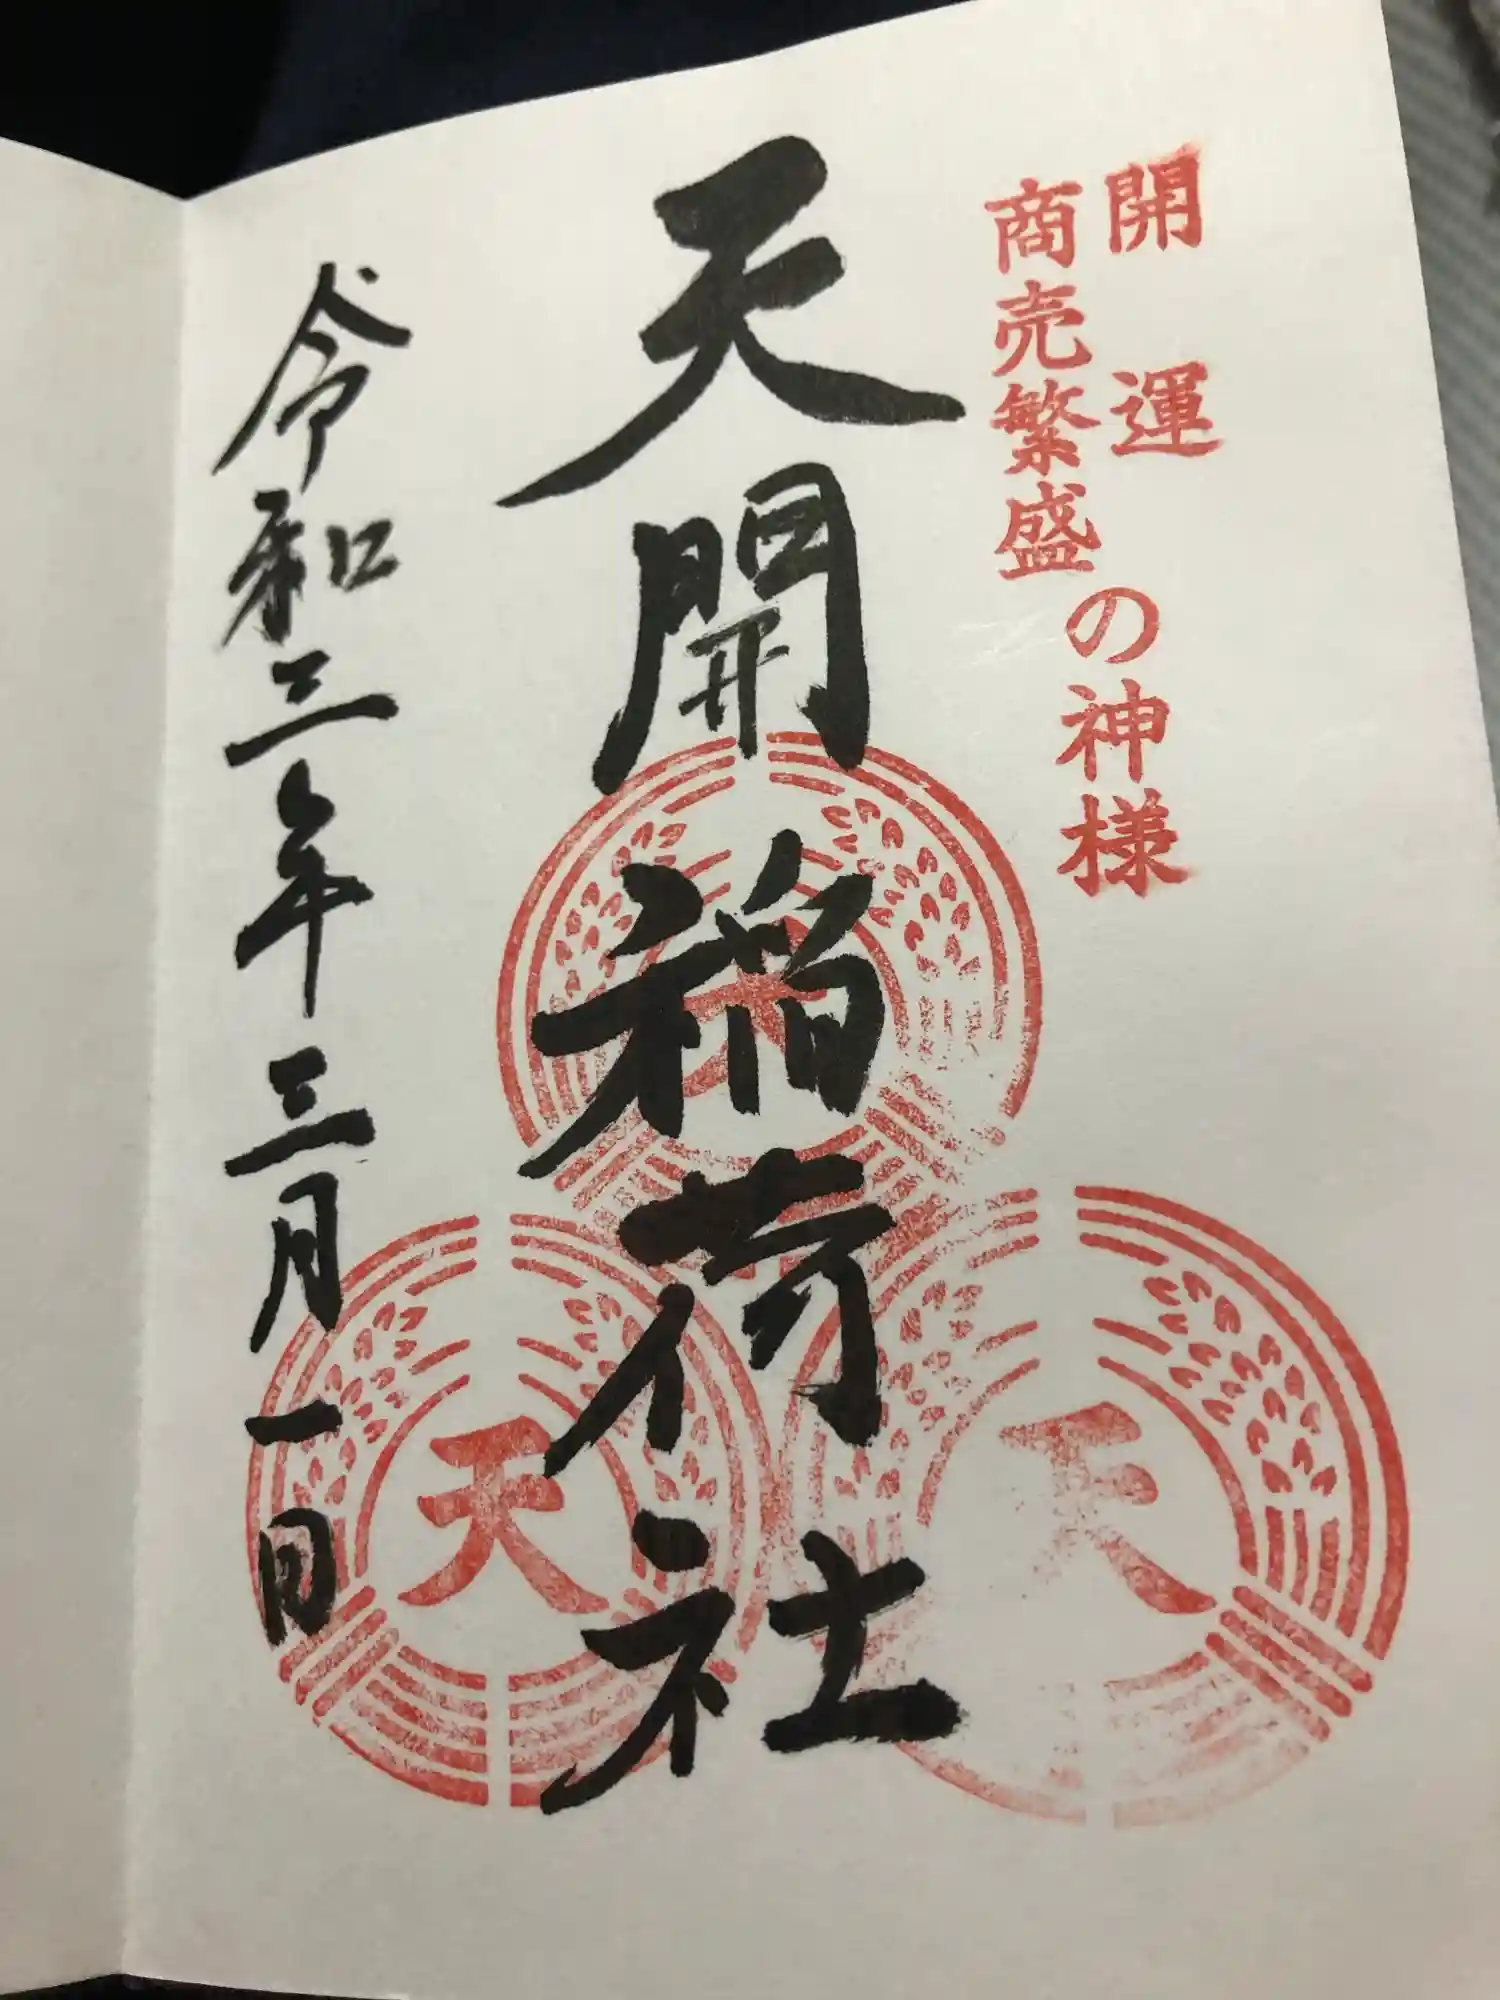 開運
商売繁盛
の神様
天開稲荷社
令和三年三月一日
天
天
天